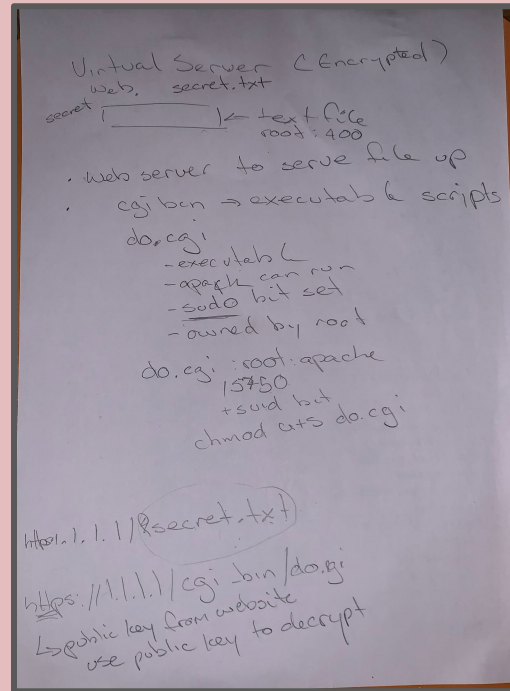 Virtual Server (Encrypted)
Web. secret.txt
secret ← text file
root: 400
. web server to serve file up
. cgi bin → executable scripts
do.cgi
- executable
- apach can run
- sudo bit set
- owned by root
do.cgi : root: apache
750
+ suid bit
chmod u+s do.cgi
1.1.1/ secret.txt
https://1.1.1.1/cgi_bin/do.cgi
↳ public key from website
use public key to decrypt